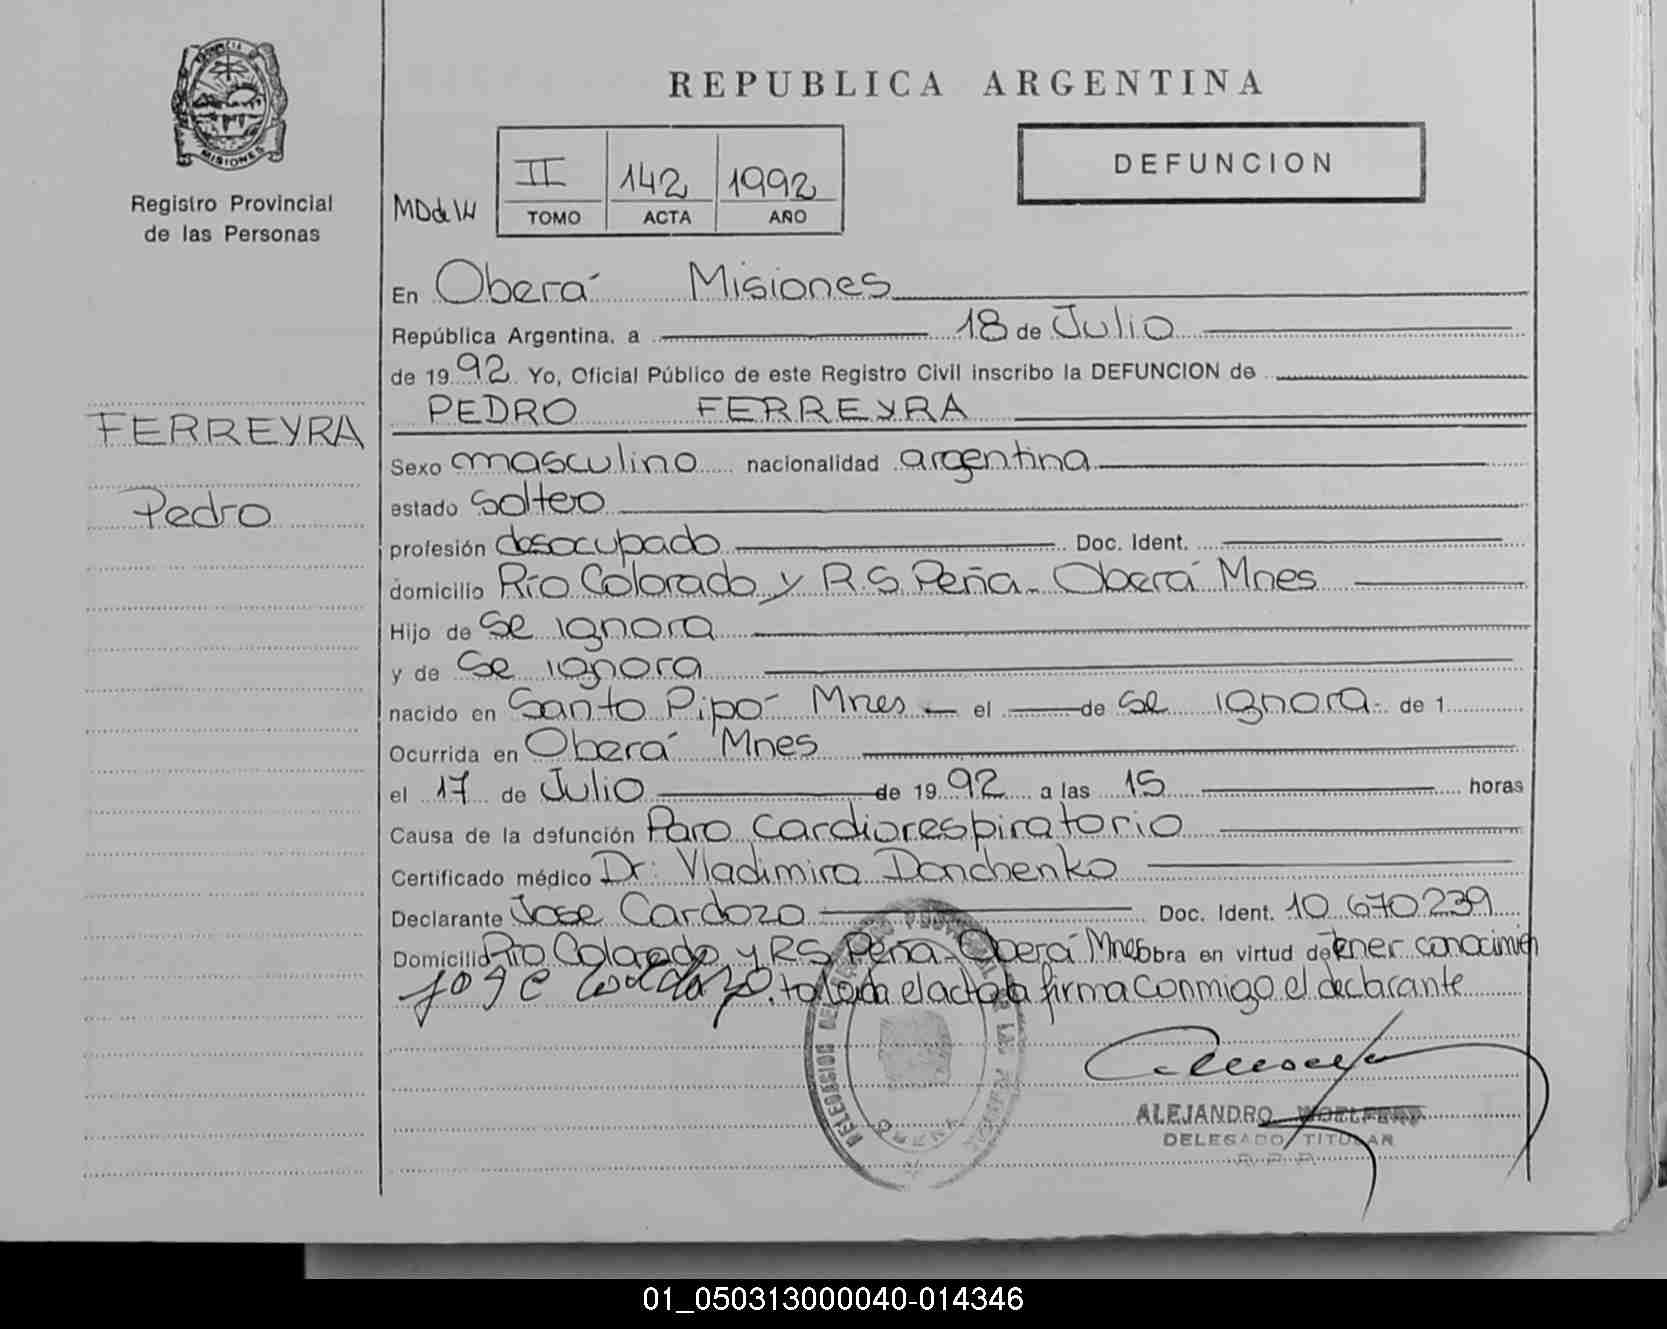 PROVINCIA DE
MISIONES
Registro Provincial
de las Personas
FERREYRA
Pedro
REPUBLICA ARGENTINA
II 142 1992
TOMO ACTA AÑO
DEFUNCION
En Oberá Misiones
República Argentina, a 18 de Julio
de 1992 Yo, Oficial Público de este Registro Civil inscribo la DEFUNCION de
PEDRO FERREYRA
Sexo masculino nacionalidad argentina
estado soltero
profesión desocupado Doc. Ident.
domicilio Río Colorado y R.S. Peña - Oberá Mnes
Hijo de se ignora
y de se ignora
nacido en Santo Pipó Mnes el de se ignora de 1
Ocurrida en Oberá Mnes
el 17 de Julio de 1992 a las 15 horas
Causa de la defunción Paro cardiorespiratorio
Certificado médico Dr: Vladimira Donchenko
Declarante Jose Cardozo Doc. Ident. 10 670239
Domicilio Río Colorado y R.S. Peña - Oberá Mnes obra en virtud de tener conocimien
to leida el acta la firma conmigo el declarante
Jose Cardozo
DELEGACION
OBERA
ALEJANDRO
DELEGADO TITULAR
R.P.P.
01_050313000040-014346